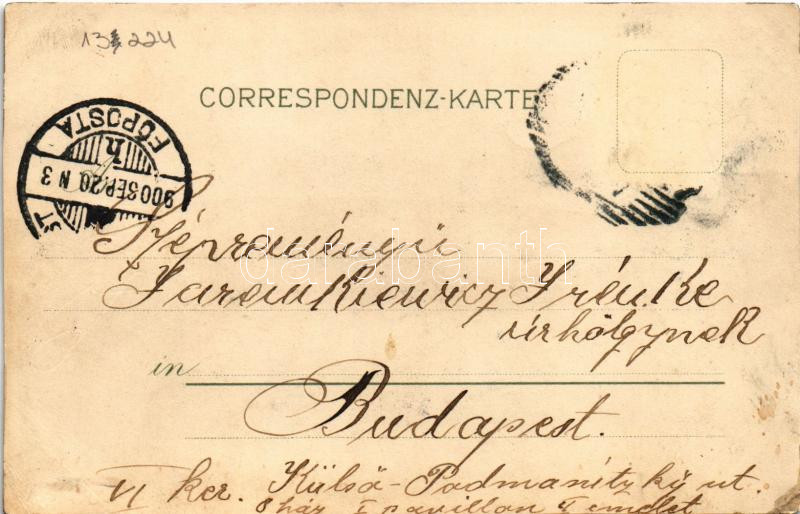 224
CORRESPONDENZ-KARTE
FŐPOSTA
900 SEP. 20 N 3
ST
Szépreményű
darabanth
Jaremkiewicz Irénke
úrhölgynek
in
Budapest.
VI ker. Külső-Podmanitzky ut.
8 ház I pavillon I emelet